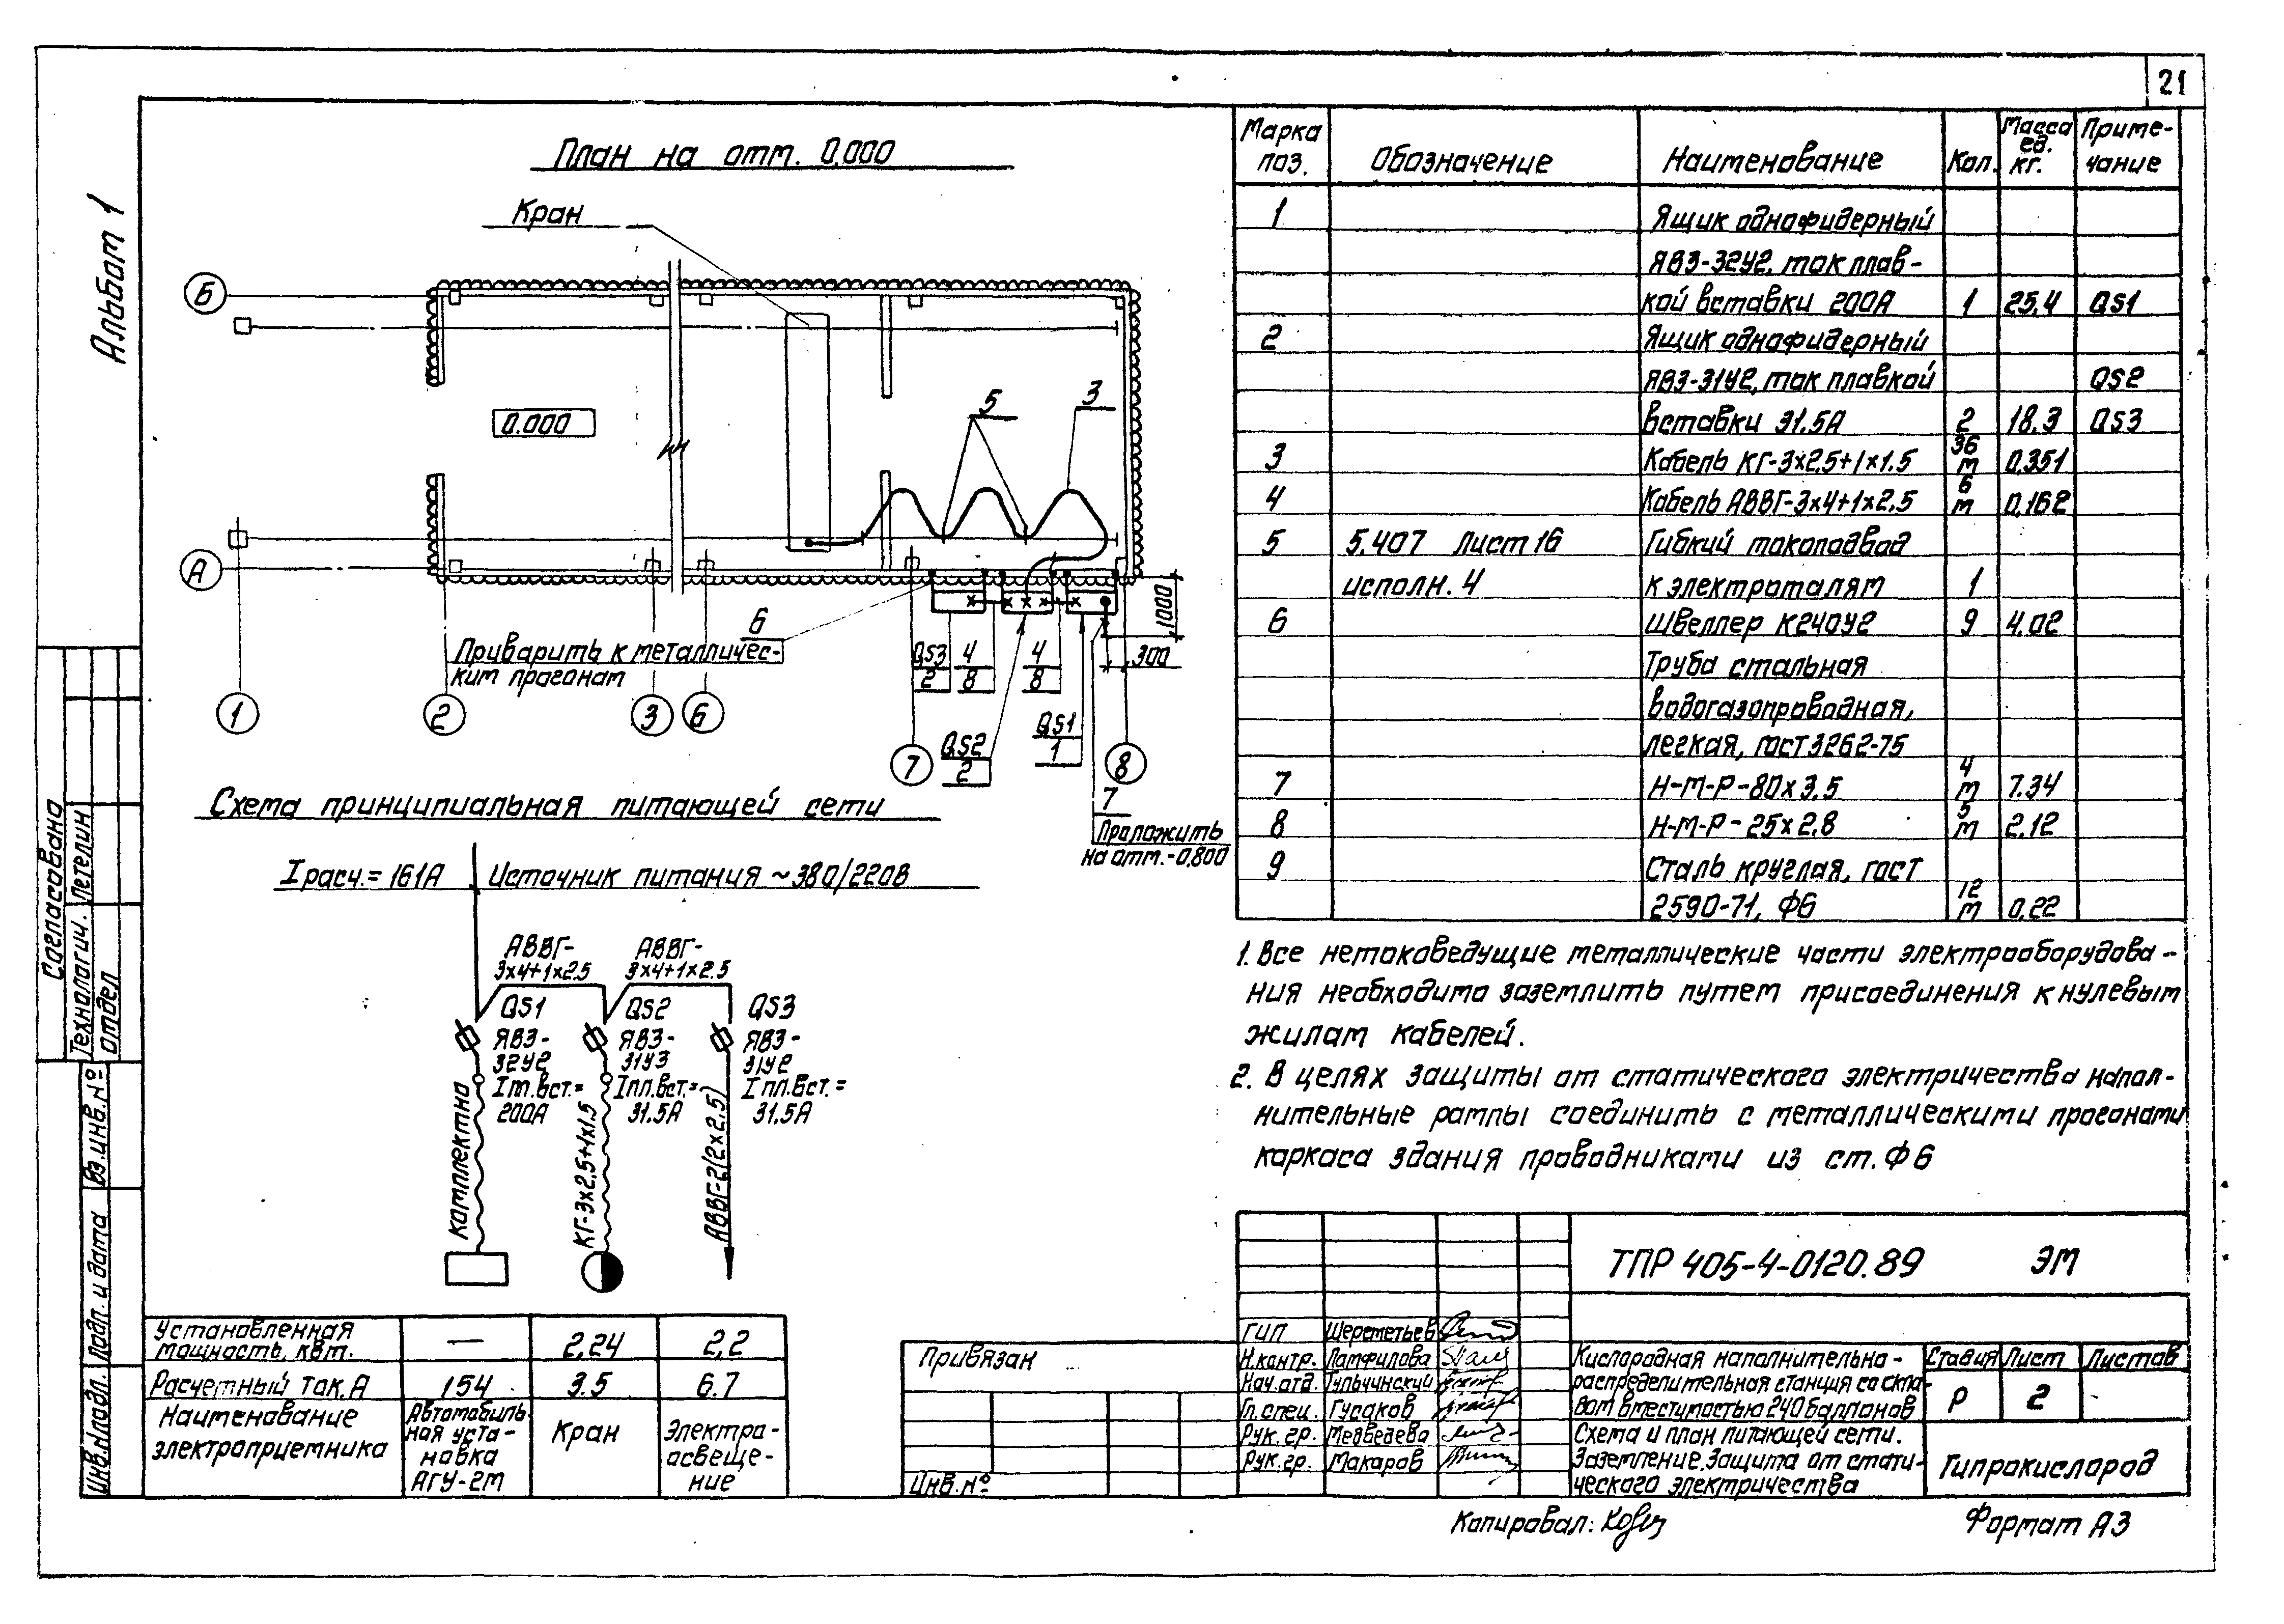 21
Альбом 1
План на отм. 0.000
Кран
Б
0.000
5
3
А
1000
300
6
Приварить к металличес-
ким прогонам
QS3
2
4
8
4
8
QS2
2
QS1
1
7
Проложить
на отм.-0,800
1
2
3
6
7
8
Схема принципиальная питающей сети
Iрасч.= 161А
Источник питания ~380/220В
АВВГ-
3х4+1х2.5
АВВГ-
3х4+1х2.5
QS1
ЯВЗ-
32У2
Iт.вст.=
200А
QS2
ЯВЗ-
31У3
Iпл.вст.=
31.5А
QS3
ЯВЗ-
31У2
Iпл.вст.=
31.5А
комплектно
КГ-3х2.5+1х1.5
АВВГ-2(2х2.5)
Установленная
мощность, квт.
—
2.24
2.2
Расчетный ток, А
154
3.5
6.7
Наименование
электроприемника
Автомобиль
ная уста-
новка
АГУ-2М
Кран
Электро-
освеще-
ние
Марка
поз.
Обозначение
Наименование
Кол.
Масса
ед.
кг.
Приме-
чание
1
Ящик однофидерный
ЯВЗ-32У2, ток плав-
кой вставки 200А
1
25,4
QS1
2
Ящик однофидерный
ЯВЗ-31У2, ток плавкой
QS2
вставки 31.5А
2
18.3
QS3
3
Кабель КГ-3х2.5+1х1.5
36
м
0,351
4
Кабель АВВГ-3х4+1х2,5
6
м
0,162
5
5.407 Лист 16
исполн. 4
Гибкий токоподвод
к электроталям
1
6
Швеллер К240У2
9
4.02
Труба стальная
водогазопроводная,
легкая, гост 3262-75
7
Н-М-Р-80х3.5
4
м
7.34
8
Н-М-Р-25х2.8
5
м
2.12
9
Сталь круглая, гост
2590-71, Ф6
12
м
0,22
1. Все нетоковедущие металлические части электрооборудова-
ния необходимо заземлить путем присоединения к нулевым
жилам кабелей.
2. В целях защиты от статического электричества напол-
нительные рампы соединить с металлическими прогонами
каркаса здания проводниками из ст. Ф6
ТПР 405-4-0120.89 ЭМ
ГИП Шереметьев
Н.контр. Памфилова
Нач.отд. Тульчинский
Гл.спец. Гусаков
Рук. гр. Медведева
Рук.гр. Макаров
Кислородная наполнительно-
распределительная станция со скла-
дом вместимостью 240 баллонов
Стадия Лист Листов
Р 2
Схема и план питающей сети.
Заземление. Защита от стати-
ческого электричества
Гипрокислород
Привязан
Инв.№
Копировал:
Формат А3
Согласовано
Технологич. Петелин
отдел
Вз.инв.№
Подп. и дата
Инв.№подл.